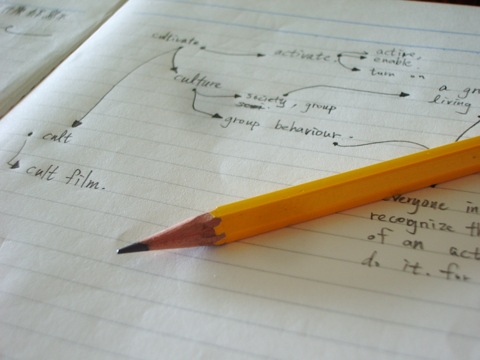 cultivate
activate.
active,
enable.
turn on
culture
society, group
a gro
living
group behaviour.
cult
cult film.
everyone in
recognize th
of an act
do it. for